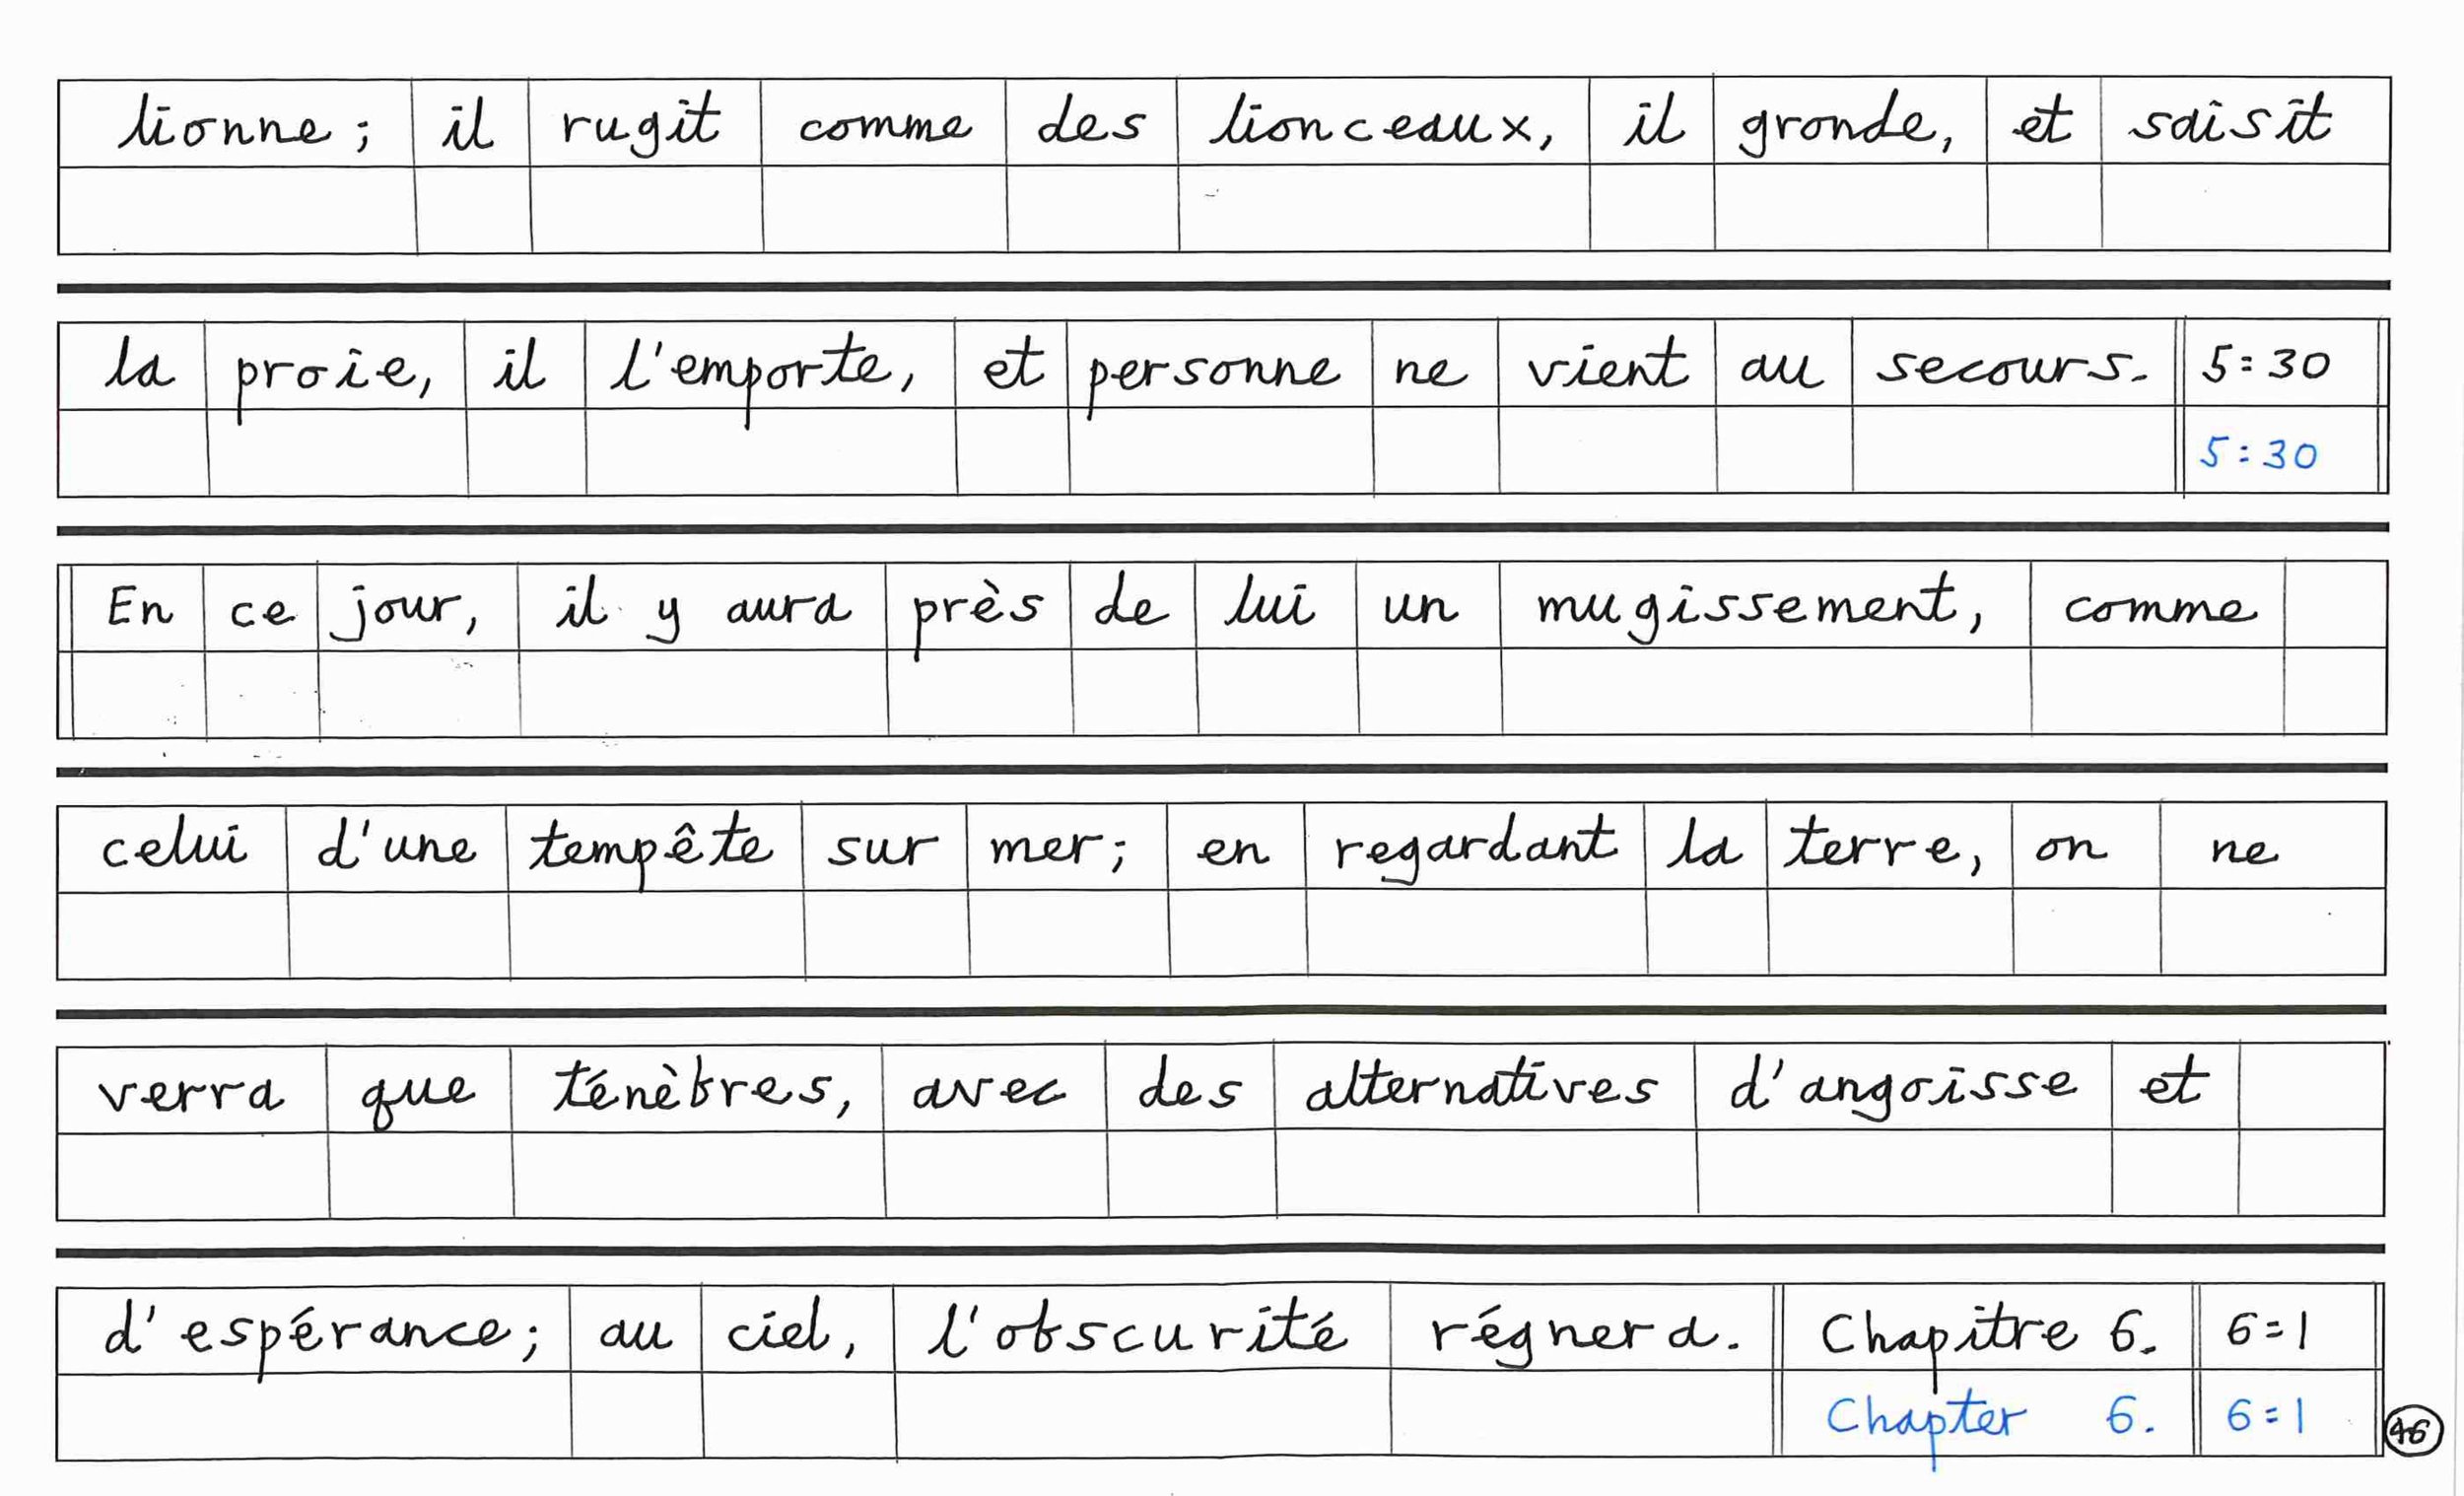 lionne; il rugit comme des lionceaux, il gronde, et saisit
la proie, il l'emporte, et personne ne vient au secours. 5:30
5:30
En ce jour, il y aura près de lui un mugissement, comme
celui d'une tempête sur mer; en regardant la terre, on ne
verra que ténèbres, avec des alternatives d'angoisse et
d'espérance; au ciel, l'obscurité régnera. Chapitre 6. 6:1
Chapter 6. 6:1
46